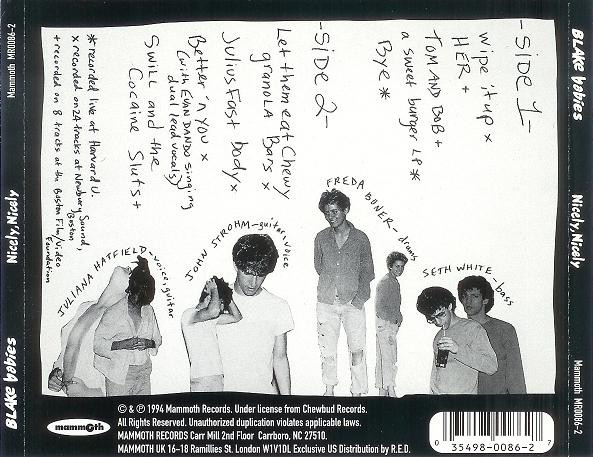 BLAKE bobies
Nicely, Nicely
Mammoth MR0086-2
-SiDE 1-
Wipe it up x
HER +
TOM AND BOB +
a sweet burger LP *
Bye *
-SiDE 2-
Let them eat Chewy
granola Bars x
Julius Fast body x
Better 'n YOU x
(with EVAN DANDO singing
dual lead vocals)
Swill and the
Cocaine Sluts +
* recorded live at Harvard U.
x recorded on 24 tracks at Newbury Sound,
Boston
+ recorded on 8 tracks at the Boston Film/Video
Foundation
JULIANA HATFIELD - voice, guitar
JOHN STROHM - guitar, voice
FREDA BONER - drums
SETH WHITE - bass
mammoth
© & ℗ 1994 Mammoth Records. Under license from Chewbud Records.
All Rights Reserved. Unauthorized duplication violates applicable laws.
MAMMOTH RECORDS Carr Mill 2nd Floor Carrboro, NC 27510.
MAMMOTH UK 16-18 Ramillies St. London W1V1DL Exclusive US Distribution by R.E.D.
0 35498-0086-2 7
BLAKE bobies
Nicely, Nicely
Mammoth MR0086-2